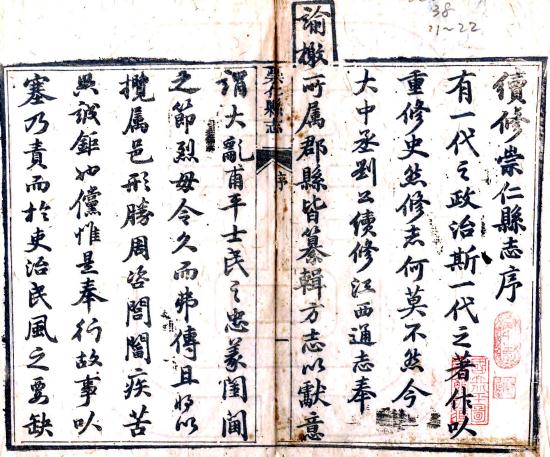 38
11~22
續修崇仁縣志序
有一代之政治斯一代之著作以
重修史然修志何莫不然今
大中丞劉公續修江西通志奉
諭檄所属郡縣皆纂輯方志以獻意
崇仁縣志 序
謂大亂甫平士民之忠義閨
之節烈毋令久而弗傳且將以
攬属邑形勝周咨閭閻疾苦
典誠鉅也儻惟是奉行故事以
塞乃責而於吏治民風之要缺